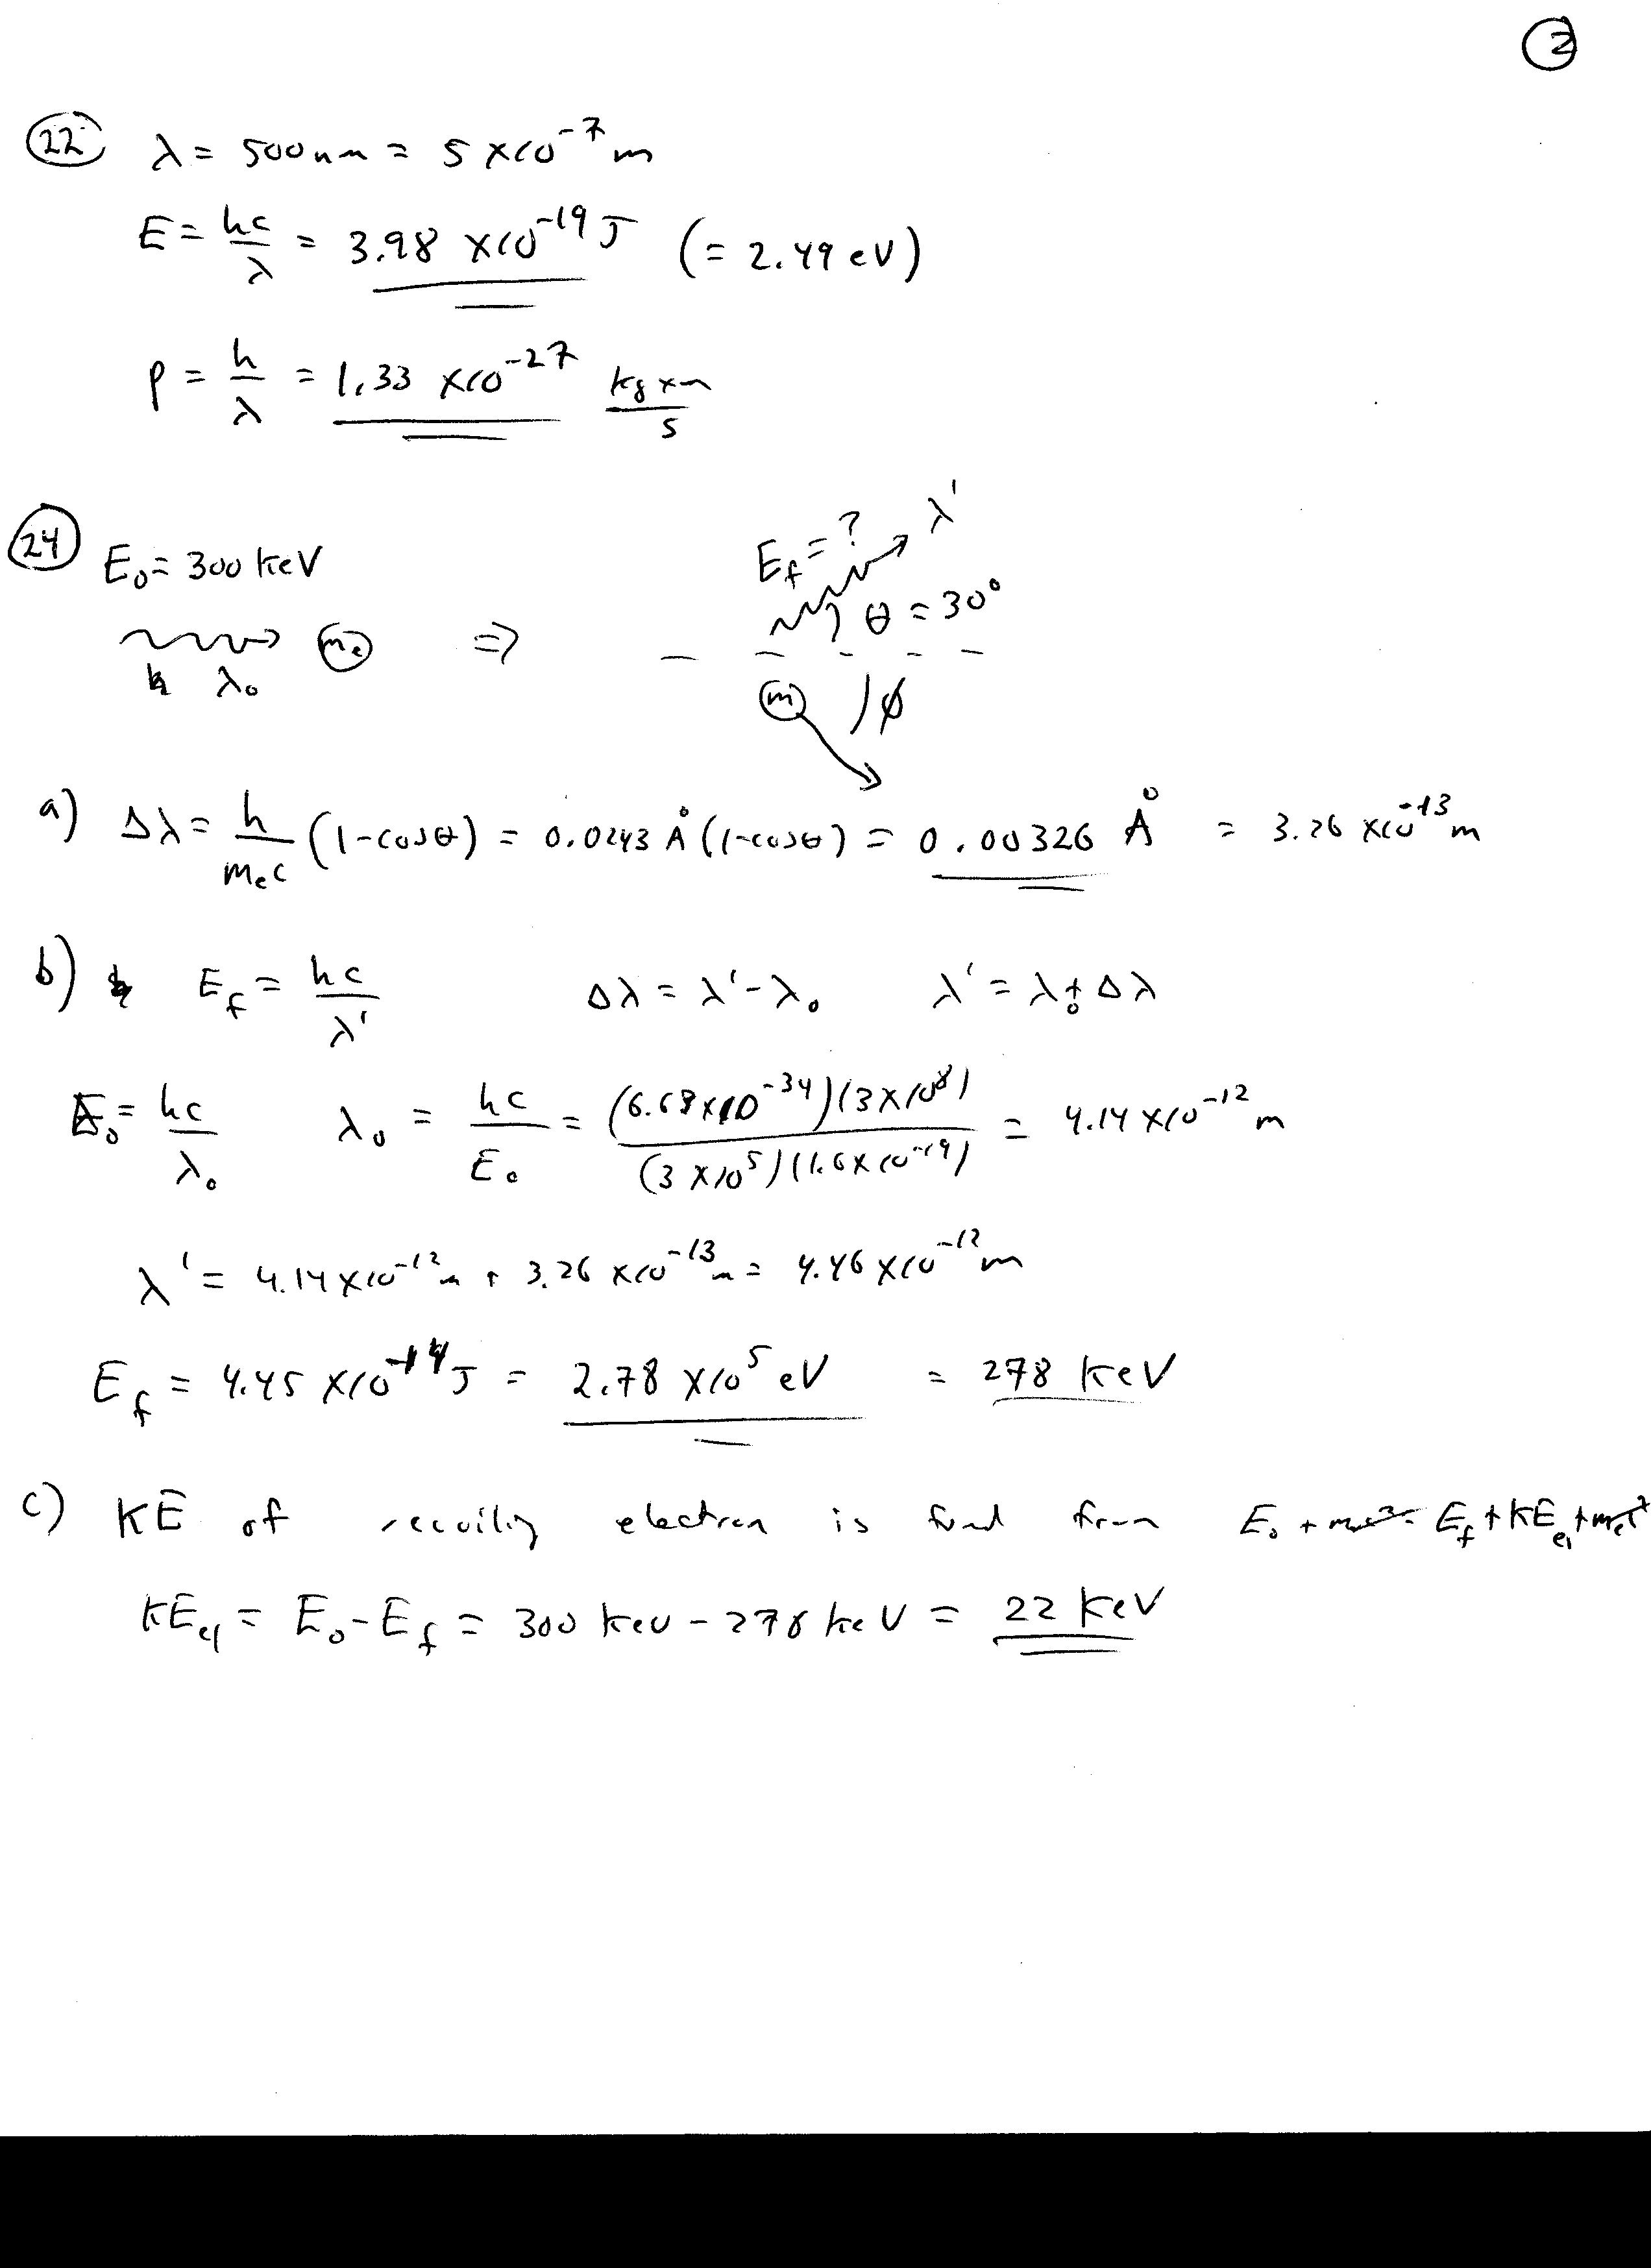 2
22 λ = 500nm = 5 ×10⁻⁷ m
E = hc/λ = 3.98 ×10⁻¹⁹ J (= 2.49 eV)
p = h/λ = 1.33 ×10⁻²⁷ kg×m/s
24 E₀ = 300 keV
E_f = ? λ'
θ = 30°
λ₀ m_e ⇒
m φ
a) Δλ = h/(m_e c) (1-cosθ) = 0.0243 Å (1-cosθ) = 0.00326 Å = 3.26 ×10⁻¹³ m
b) E_f = hc/λ' Δλ = λ' - λ₀ λ' = λ₀ + Δλ
E₀ = hc/λ₀ λ₀ = hc/E₀ = (6.63×10⁻³⁴)(3×10⁸)/(3×10⁵)(1.6×10⁻¹⁹) = 4.14 ×10⁻¹² m
λ' = 4.14 ×10⁻¹² m + 3.26 ×10⁻¹³ m = 4.46 ×10⁻¹² m
E_f = 4.45 ×10⁻¹⁴ J = 2.78 ×10⁵ eV = 278 keV
c) KE of recoiling electron is found from E₀ + m_ec² = E_f + KE_el + m_ec²
KE_el = E₀ - E_f = 300 keV - 278 keV = 22 keV